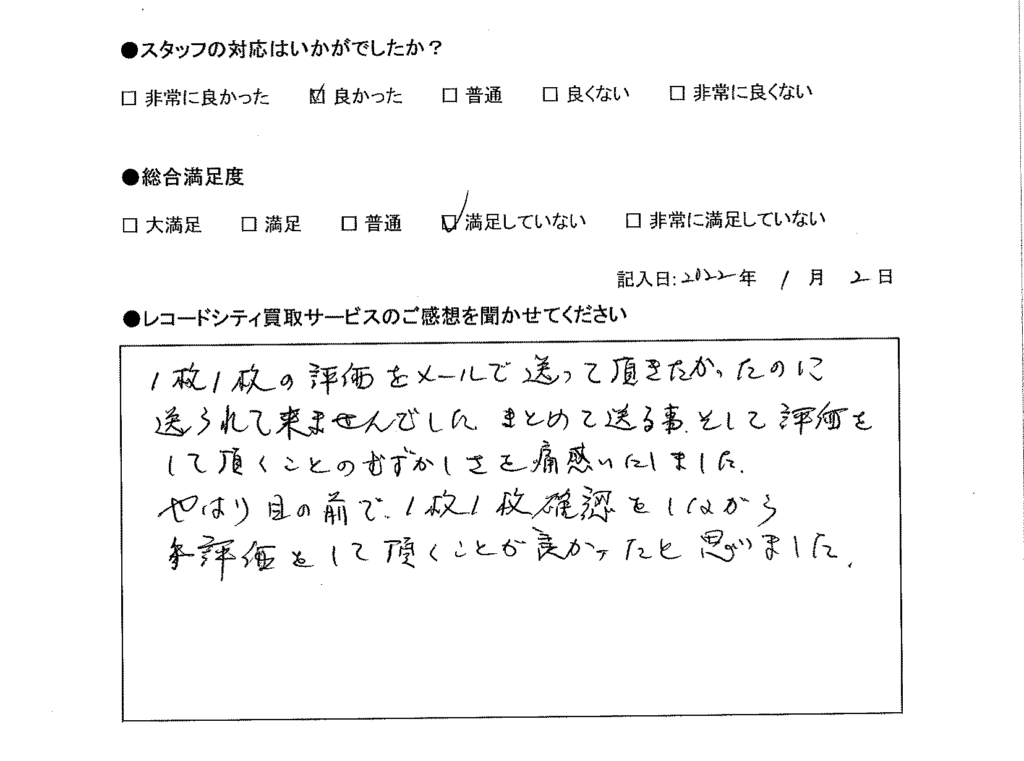 ●スタッフの対応はいかがでしたか？
□ 非常に良かった ☑ 良かった □ 普通 □ 良くない □ 非常に良くない
●総合満足度
□ 大満足 □ 満足 □ 普通 ☑ 満足していない □ 非常に満足していない
記入日:2022年 1月 2日
●レコードシティ買取サービスのご感想を聞かせてください
1枚1枚の評価をメールで送って頂きたかったのに
送られて来ませんでした。まとめて送る事、そして評価を
して頂くことのむずかしさを痛感いたしました。
やはり目の前で、1枚1枚確認をしながら
評価をして頂くことが良かったと思いました。